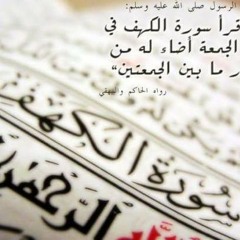 الرسول صلى الله عليه وسلم:
قرأ سورة الكهف في
الجمعة أضاء له من
ر ما بين الجمعتين"
رواه الحاكم والبيهقي
سورة الكهف
الرحمن